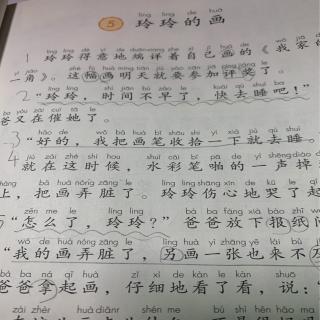 líng líng de huà
5 玲玲的画
líng líng dé yì de duān xiáng zhe zì jǐ huà de wǒ jiā de
1 玲玲得意地端详着自己画的《我家的
yì jiǎo zhè fú huà míng tiān jiù yào cān jiā píng jiǎng le
一角》。这幅画明天就要参加评奖了。
2 "玲玲，时间不早了，快去睡吧！"
bà yòu zài cuī tā le
爸又在催她了。
hǎo de wǒ bǎ huà bǐ shōu shi yí xià jiù qù shuì
3 "好的，我把画笔收拾一下就去睡。
jiù zài zhè shí hou shuǐ cǎi bǐ pā de yì shēng diào
4 就在这时候，水彩笔啪的一声掉
bǎ huà nòng zāng le líng líng shāng xīn de kū le qǐ
上，把画弄脏了。玲玲伤心地哭了起
zěn me le líng líng bà ba fàng xià bào zhǐ
"怎么了，玲玲？"爸爸放下报纸问
wǒ de huà nòng zāng le lìng huà yì zhāng yě lái bù
"我的画弄脏了，另画一张也来不及
bà ba ná qǐ huà zǐ xì de kàn le kàn shuō
爸爸拿起画，仔细地看了看，说："